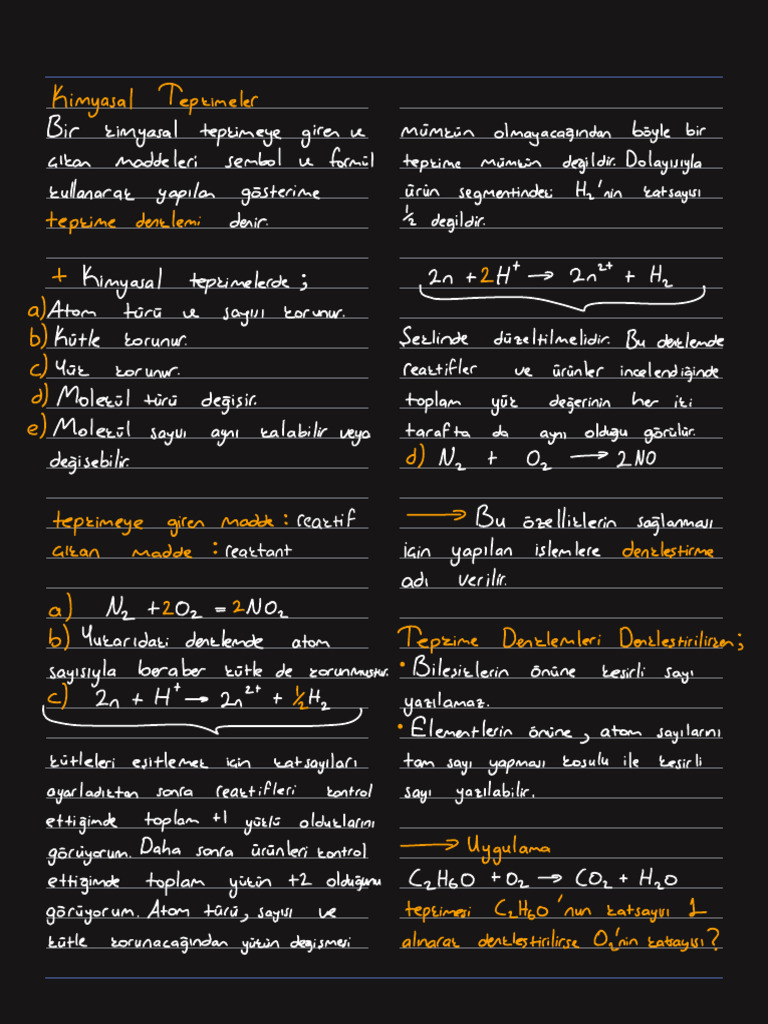 Kimyasal Tepkimeler
Bir kimyasal tepkimeye giren ve
çıkan maddeleri sembol ve formül
kullanarak yapılan gösterime
tepkime denklemi denir.
+ Kimyasal tepkimelerde ;
a) Atom türü ve sayısı korunur.
b) Kütle korunur.
c) Yük korunur.
d) Molekül türü değişir.
e) Molekül sayısı aynı kalabilir veya
değişebilir.
tepkimeye giren madde : reaktif
çıkan madde : reaktant
a) N₂ + 2O₂ = 2NO₂
b) Yukarıdaki denklemde atom
sayısıyla beraber kütle de korunmuştur.
c) Zn + H⁺ → Zn²⁺ + ½H₂
kütleleri eşitlemek için katsayıları
ayarladıktan sonra reaktifleri kontrol
ettiğimde toplam +1 yüklü olduklarını
görüyorum. Daha sonra ürünleri kontrol
ettiğimde toplam yükün +2 olduğunu
görüyorum. Atom türü, sayısı ve
kütle korunacağından yükün değişmesi
mümkün olmayacağından böyle bir
tepkime mümkün değildir. Dolayısıyla
ürün segmentindeki H₂'nin katsayısı
½ değildir.
Zn + 2H⁺ → Zn²⁺ + H₂
Şeklinde düzeltilmelidir. Bu denklemde
reaktifler ve ürünler incelendiğinde
toplam yük değerinin her iki
tarafta da aynı olduğu görülür.
d) N₂ + O₂ → 2NO
→ Bu özelliklerin sağlanması
için yapılan işlemlere denkleştirme
adı verilir.
Tepkime Denklemleri Denkleştirilirken;
• Bileşiklerin önüne kesirli sayı
yazılamaz.
• Elementlerin önüne, atom sayılarını
tam sayı yapması koşulu ile kesirli
sayı yazılabilir.
→ Uygulama
C₂H₆O + O₂ → CO₂ + H₂O
tepkimesi C₂H₆O'nun katsayısı 1
alınarak denkleştirilirse O₂'nin katsayısı?